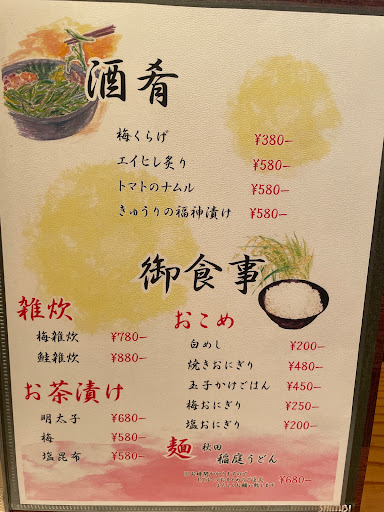 酒肴
梅くらげ ¥380−
エイヒレ炙り ¥580−
トマトのナムル ¥580−
きゅうりの福神漬け ¥580−
御食事
雑炊
梅雑炊 ¥780−
鮭雑炊 ¥880−
お茶漬け
明太子 ¥680−
梅 ¥580−
塩昆布 ¥580−
おこめ
白めし ¥200−
焼きおにぎり ¥480−
玉子かけごはん ¥450−
梅おにぎり ¥250−
塩おにぎり ¥200−
麺 秋田
稲庭うどん
¥680−